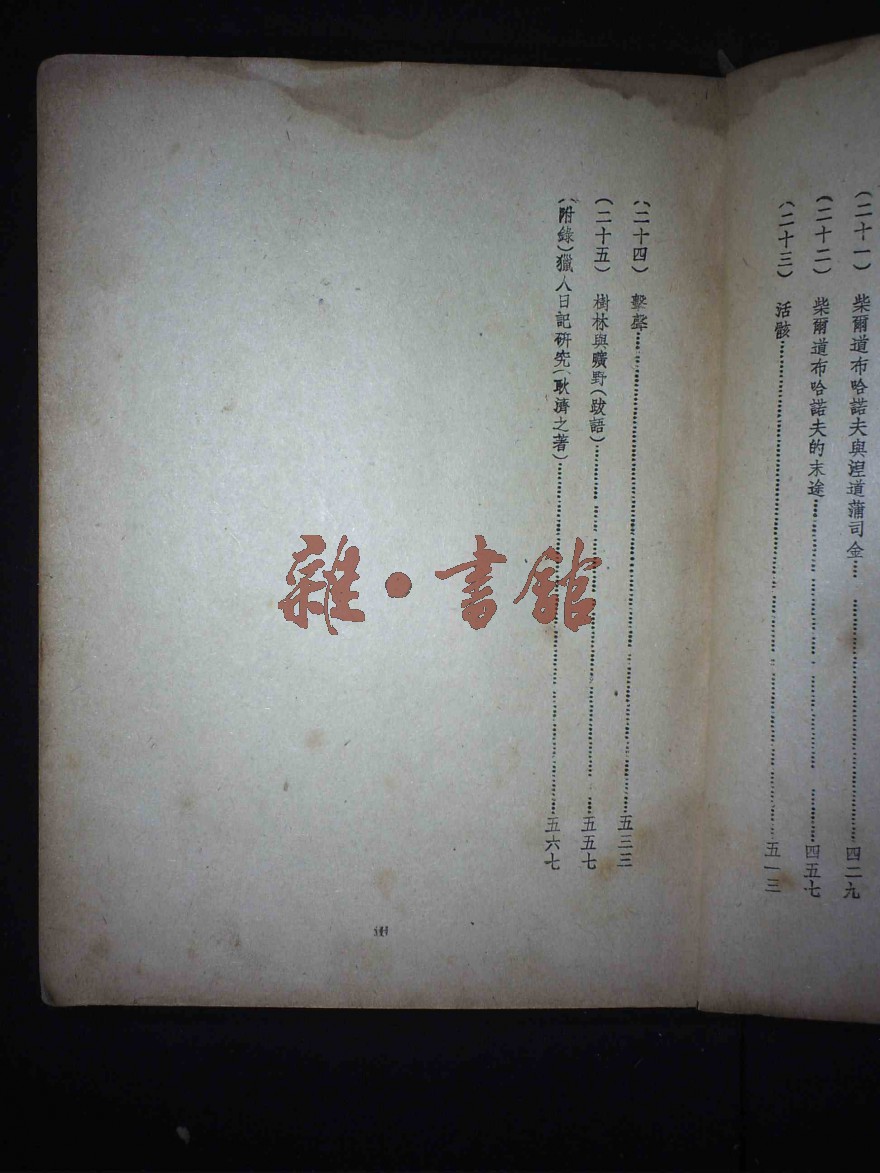 (二十一) 柴爾道布哈諾夫與湼道蒲司金……四二九
(二十二) 柴爾道布哈諾夫的末途……四五七
(二十三) 活骸……五一三
(二十四) 擊聲……五三三
(二十五) 樹林與曠野(跋語)……五五七
(附錄)獵人日記研究(耿濟之著)……五六七
雜·書館